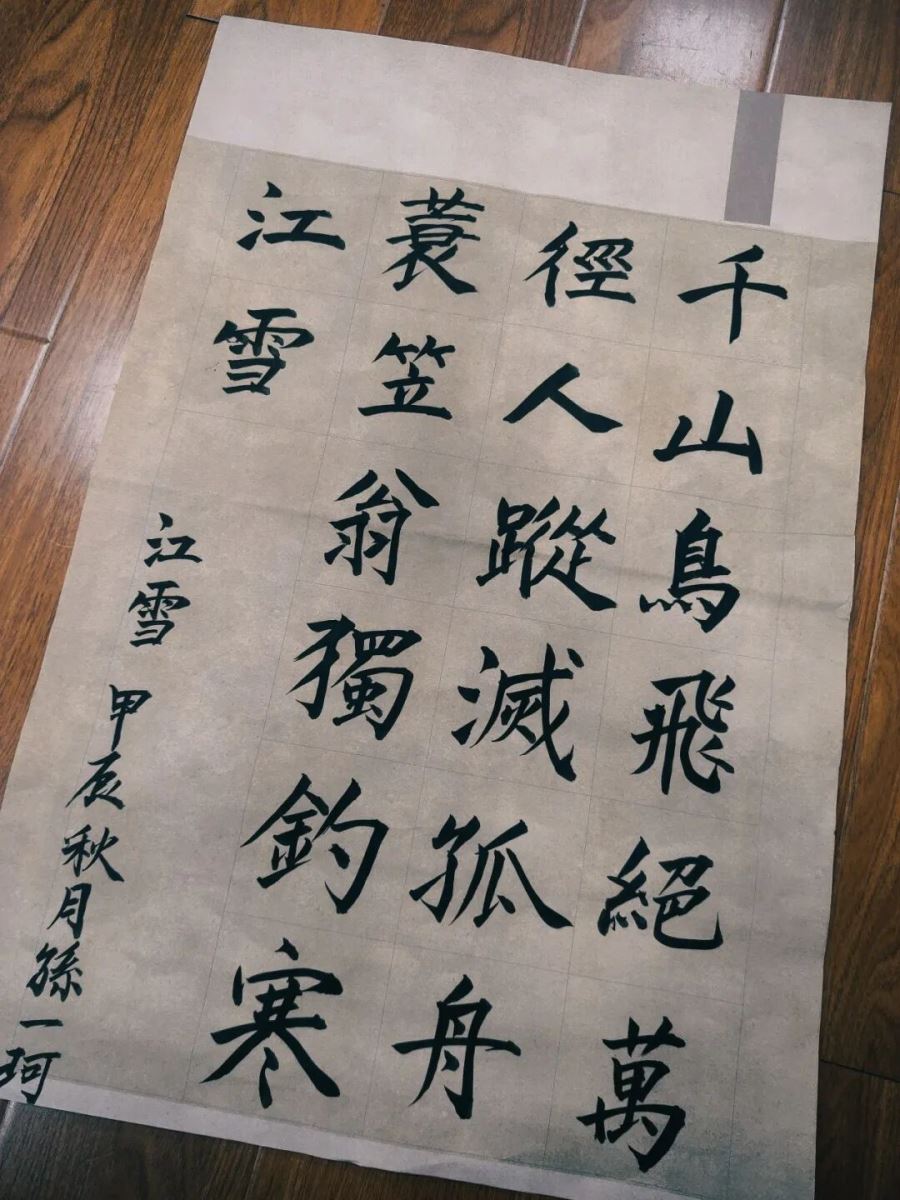 千山鳥飛絕萬
徑人蹤滅孤舟
蓑笠翁獨釣寒
江雪
江雪 甲辰秋月孫一珂